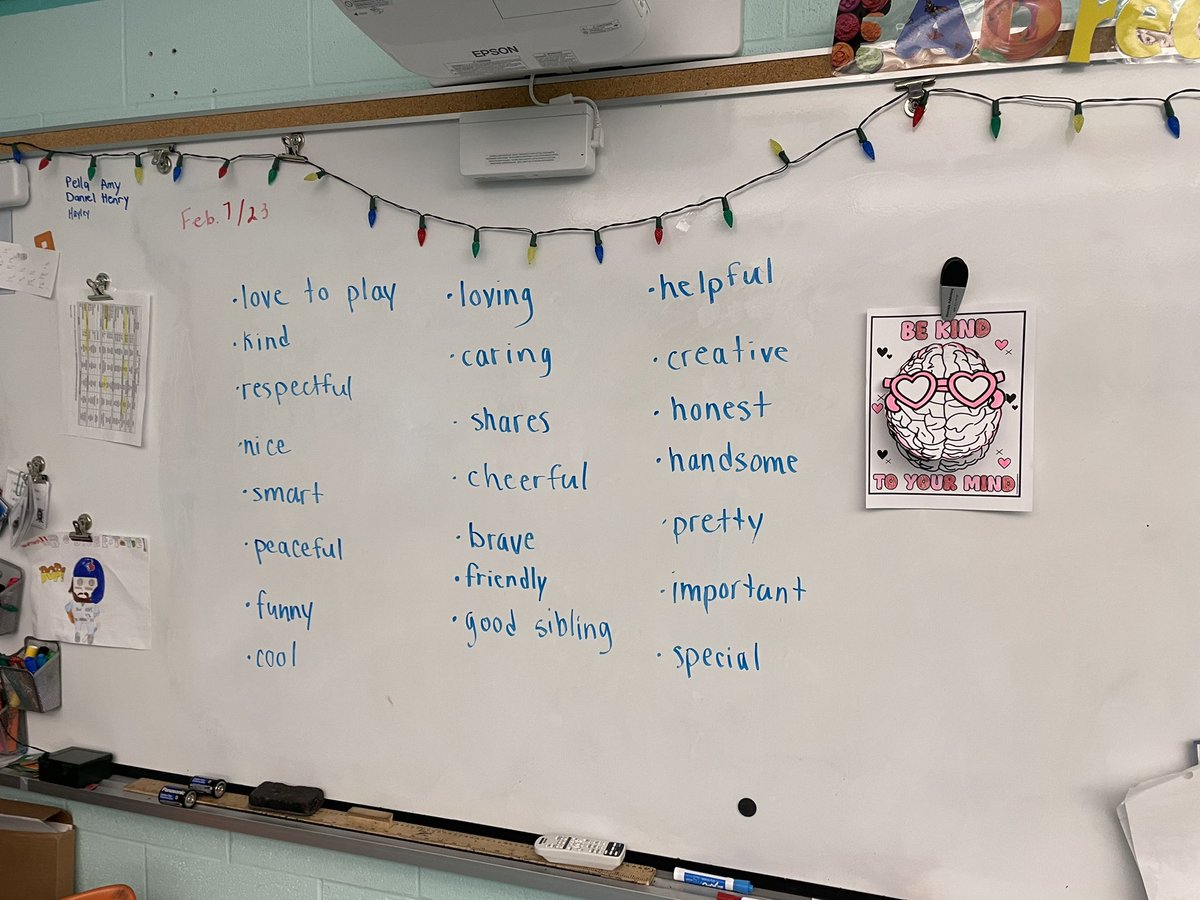 EPSON
Pella Amy
Daniel Henry
Hayley
Feb. 7/23
·love to play
·kind
·respectful
·nice
·smart
·peaceful
·funny
·cool
·loving
·caring
·shares
·cheerful
·brave
·friendly
·good sibling
·helpful
·creative
·honest
·handsome
·pretty
·important
·special
BE KIND
TO YOUR MIND
Panasonic